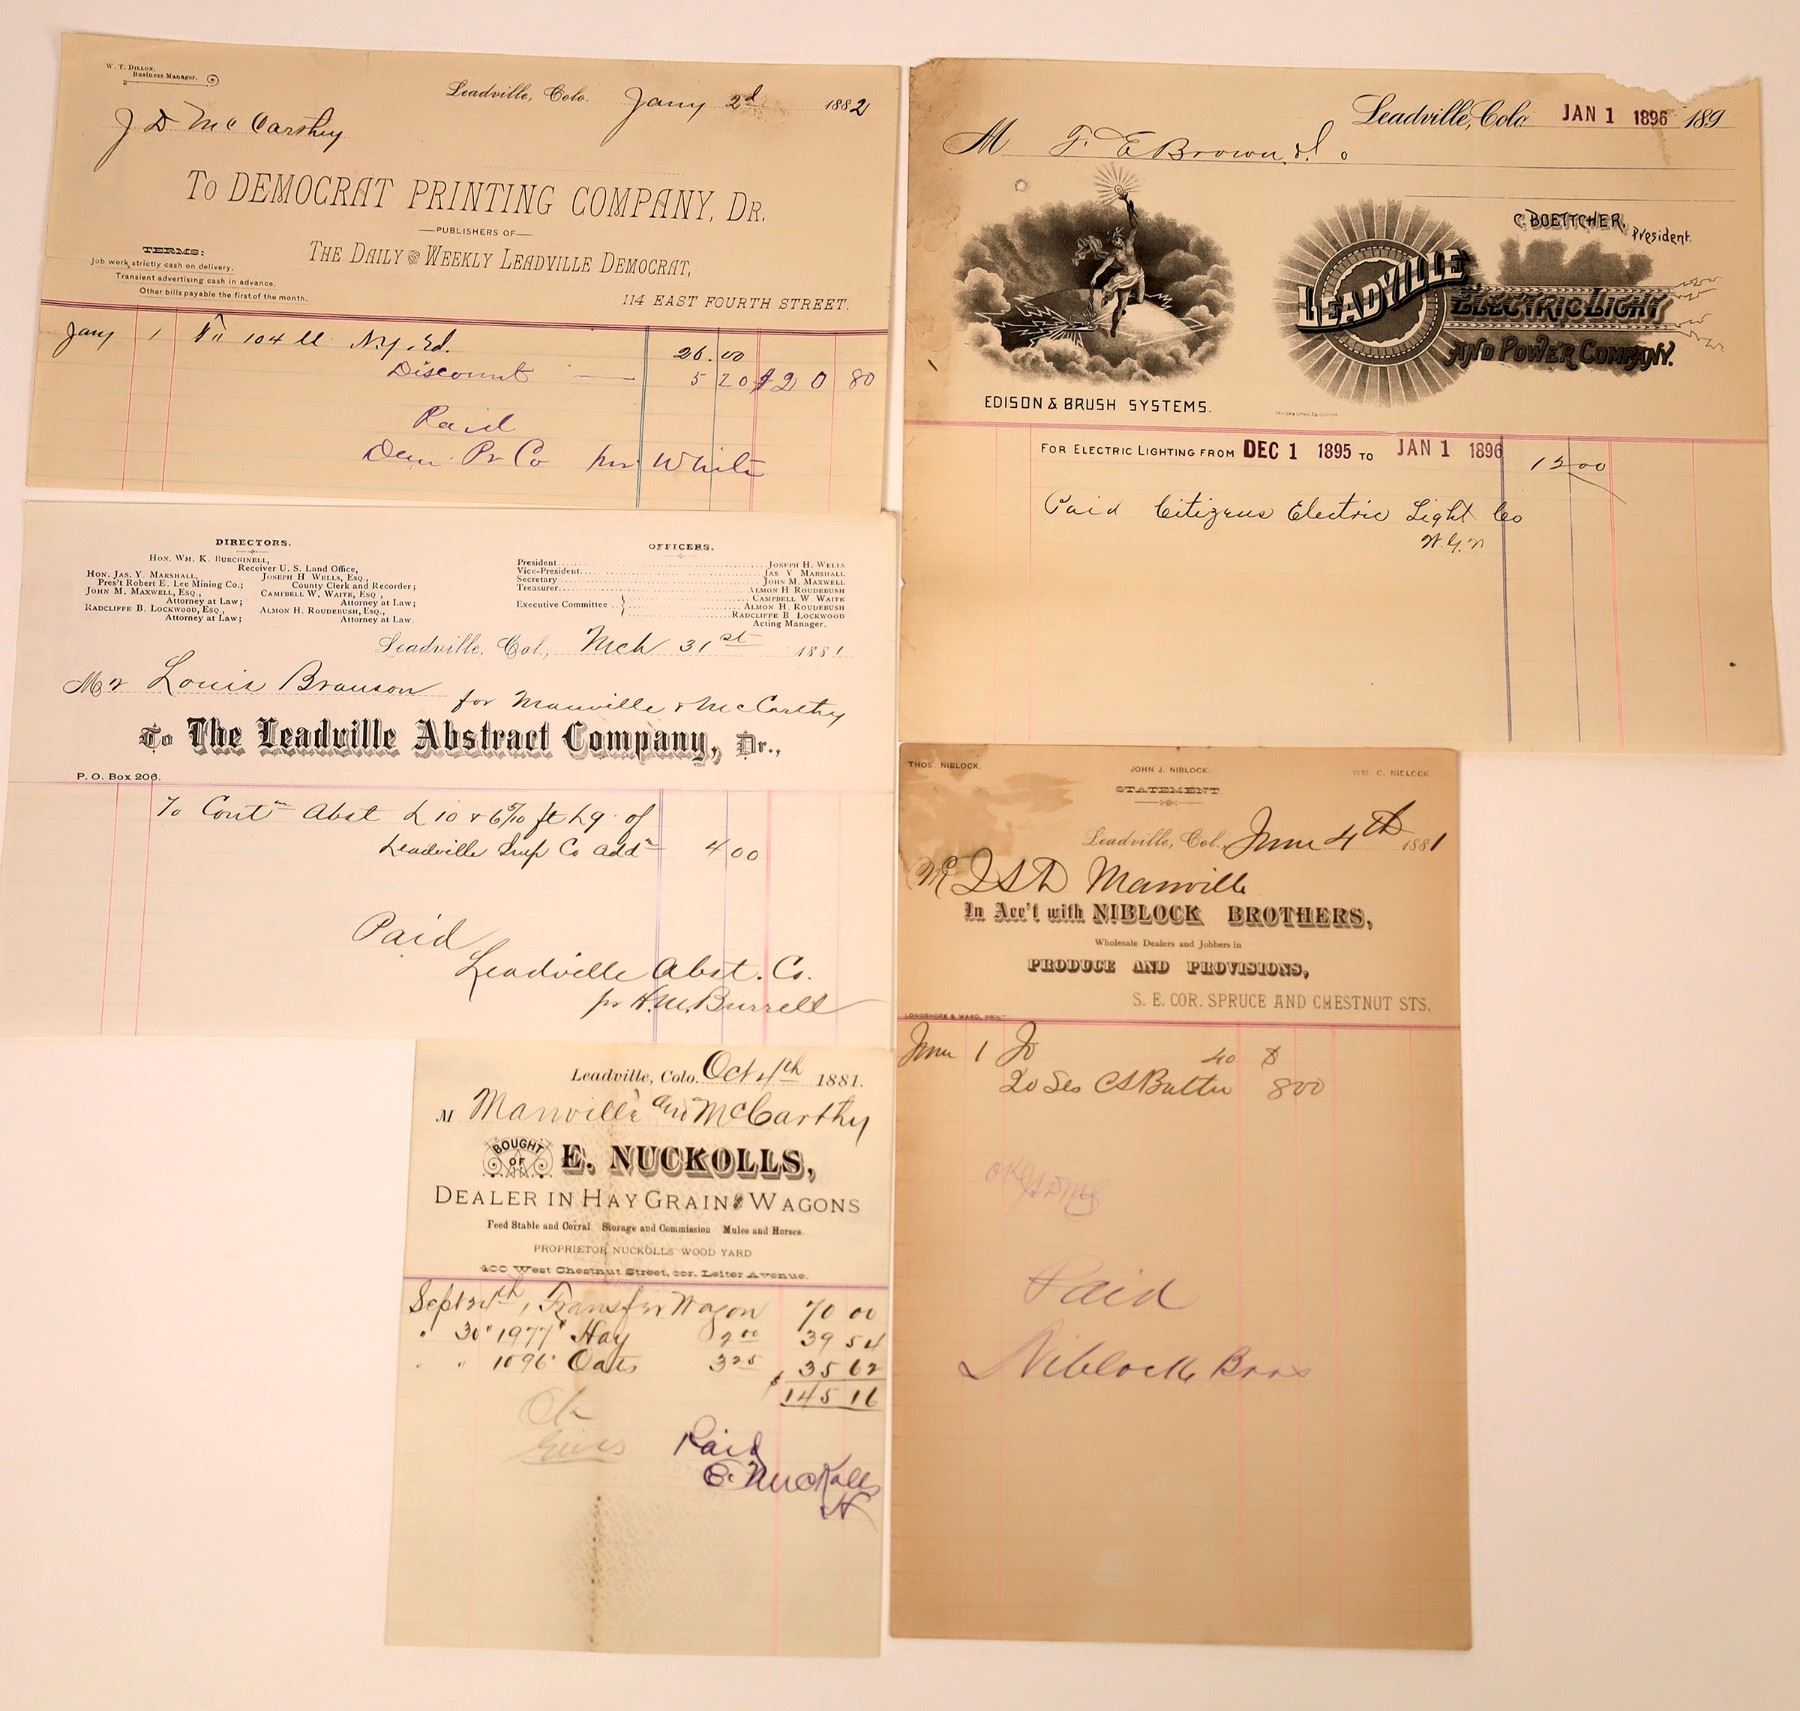 W. T. Dillon,
Business Manager.
Leadville, Colo. Jany 2d 1882
J D McCarthy
To DEMOCRAT PRINTING COMPANY, Dr.
PUBLISHERS OF
The Daily & Weekly Leadville Democrat,
TERMS:
Job work strictly cash on delivery.
Transient advertising cash in advance.
Other bills payable the first of the month.
114 EAST FOURTH STREET.
Jany 1 104 N.Y. Ed. 26.00
Discount 5 20 $20 80
Paid
Dem Pr Co per White
Leadville, Colo. JAN 1 1896 189
M F. E Brown
C. BOETTCHER, President.
LEADVILLE
ELECTRIC LIGHT
AND POWER COMPANY.
EDISON & BRUSH SYSTEMS.
FOR ELECTRIC LIGHTING FROM DEC 1 1895 TO JAN 1 1896 15 00
Paid Citizens Electric Light Co
DIRECTORS.
Hon. Wm. K. Burchinell,
Receiver U. S. Land Office,
Hon. Jas. Y. Marshall,
Pres't Robert E. Lee Mining Co.;
John M. Maxwell, Esq.,
Attorney at Law;
Radcliffe B. Lockwood, Esq.,
Attorney at Law;
Joseph H Wells, Esq.,
County Clerk and Recorder;
Campbell W. Waite, Esq,
Attorney at Law;
Almon H. Roudebush, Esq.,
Attorney at Law.
OFFICERS.
President Joseph H. Wells
Vice-President Jas Y Marshall
Secretary John M. Maxwell
Treasurer Almon H Roudebush
Executive Committee Campbell W Waite
Almon H. Roudebush
Radcliffe B Lockwood
Acting Manager.
Leadville, Col., Mch 31st 1881
Mr Louis Branson for Manville & McCarthy
To The Leadville Abstract Company, Dr.,
P. O. Box 206.
To Contn Abst L 10 & 6 7/10 ft L 9 of
Leadville Imp Co Addn 4 00
Paid
Leadville Abst. Co.
pr H. M. Burrell
THOS. NIBLOCK. JOHN J. NIBLOCK. WM. C. NIBLOCK
STATEMENT
Leadville, Col., June 4th 1881
M Manville
In Acc't with NIBLOCK BROTHERS,
Wholesale Dealers and Jobbers in
PRODUCE AND PROVISIONS,
S. E. COR. SPRUCE AND CHESTNUT STS.
LONGSHORE & WARD, PRINT
June 1 To 40
20 Butter 8 00
Paid
Niblock Bros
Leadville, Colo. Oct 4th 1881.
M Manville and McCarthy
BOUGHT OF
E. NUCKOLLS,
DEALER IN HAY GRAIN & WAGONS
Feed Stable and Corral. Storage and Commission Mules and Horses.
PROPRIETOR NUCKOLLS' WOOD YARD
400 West Chestnut Street, cor. Leiter Avenue.
Sept 24th 1 Transfer Wagon 70 00
" 30 " 1977# Hay 2 00 39 54
" " 1096 Oats 3 25 35 62
$ 145 16
Ok
Paid
E. Nuckolls
H